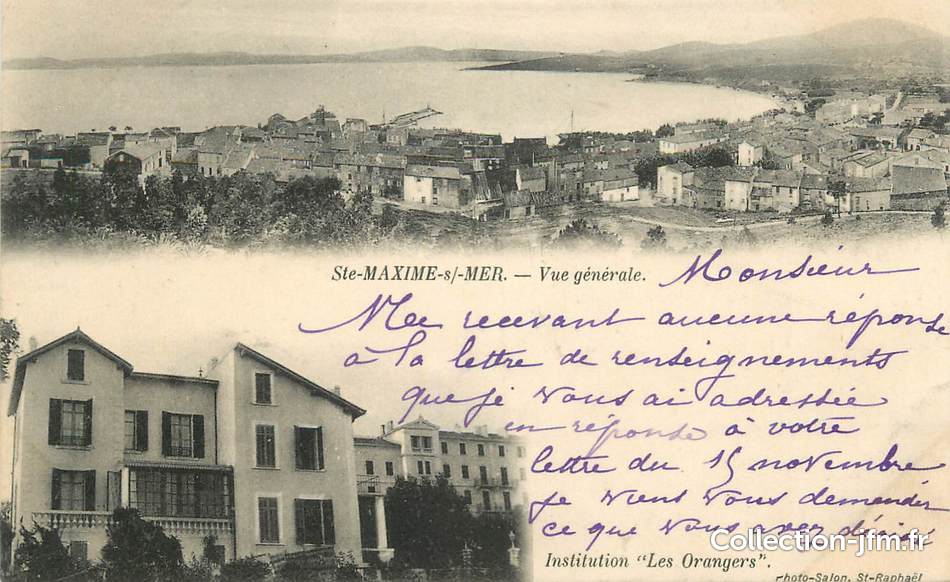 Ste-MAXIME-s/-MER. — Vue générale.
Monsieur
Ne recevant aucune réponse
à la lettre de renseignements
que je vous ai adressée
en réponse à votre
lettre du 15 novembre
je viens vous demander
ce que vous avez décidé
Collection-jfm.fr
Institution "Les Orangers".
Photo-Salon, St-Raphaël